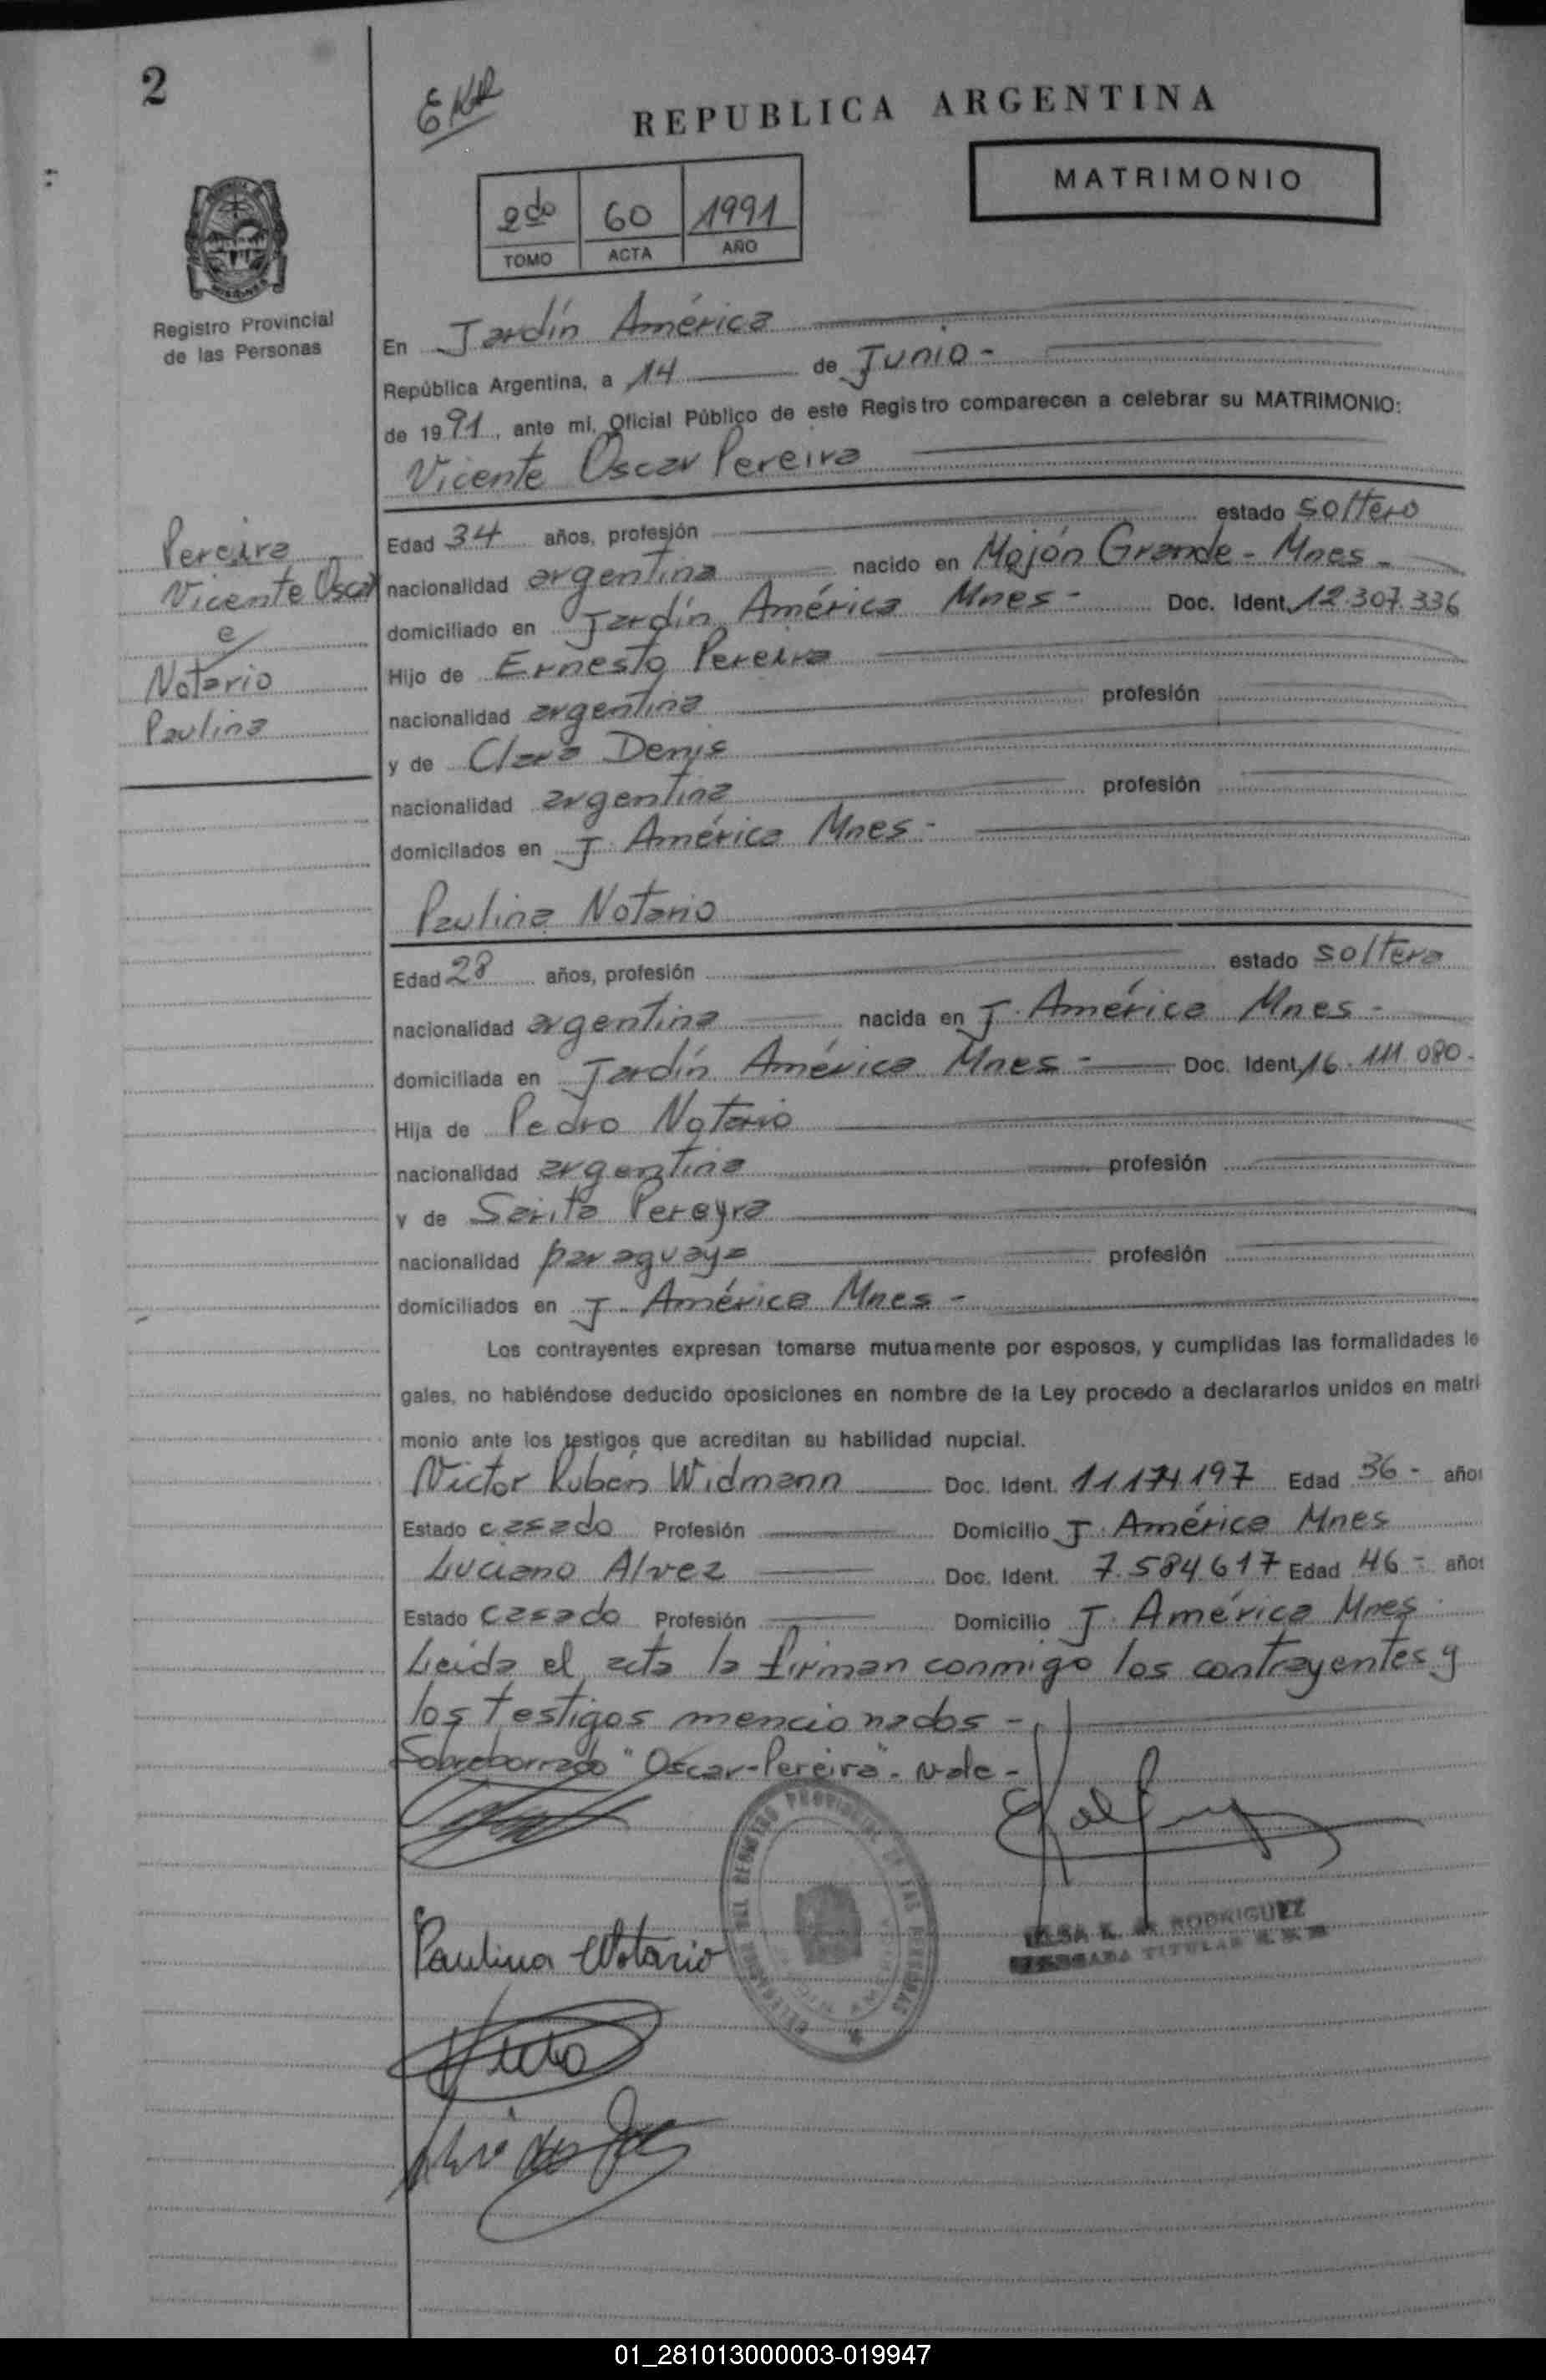 2
REPUBLICA ARGENTINA
MATRIMONIO
2do 60 1991
TOMO ACTA AÑO
Registro Provincial
de las Personas
En Jardín América
República Argentina, a 14 de Junio -
de 1991, ante mi, Oficial Público de este Registro comparecen a celebrar su MATRIMONIO:
Vicente Oscar Pereira
Pereira
Vicente Oscar
e
Notario
Paulina
Edad 34 años, profesión estado soltero
nacionalidad argentina nacido en Mojón Grande - Mnes -
domiciliado en Jardín América Mnes - Doc. Ident. 12.307.336
Hijo de Ernesto Pereira
nacionalidad argentina profesión
y de Clara Denis
nacionalidad argentina profesión
domiciliados en J. América Mnes -
Paulina Notario
Edad 28 años, profesión estado soltera
nacionalidad argentina nacida en J. América Mnes -
domiciliada en Jardín América Mnes - Doc. Ident. 16.111.080 -
Hija de Pedro Notario
nacionalidad argentina profesión
y de Sarita Pereyra
nacionalidad paraguaya profesión
domiciliados en J. América Mnes -
Los contrayentes expresan tomarse mutuamente por esposos, y cumplidas las formalidades le
gales, no habiéndose deducido oposiciones en nombre de la Ley procedo a declararlos unidos en matri
monio ante los testigos que acreditan su habilidad nupcial.
Victor Rubén Widmann Doc. Ident. 11.171.197 Edad 36 - años
Estado casado Profesión Domicilio J. América Mnes
Luciano Alvez Doc. Ident. 7.584.617 Edad 46 - años
Estado casado Profesión Domicilio J. América Mnes.
Leída el acta la firman conmigo los contrayentes y
los testigos mencionados -
Sobreborrado "Oscar-Pereira". Vale -
Paulina Notario
RODRIGUEZ
TITULAR
01_281013000003-019947